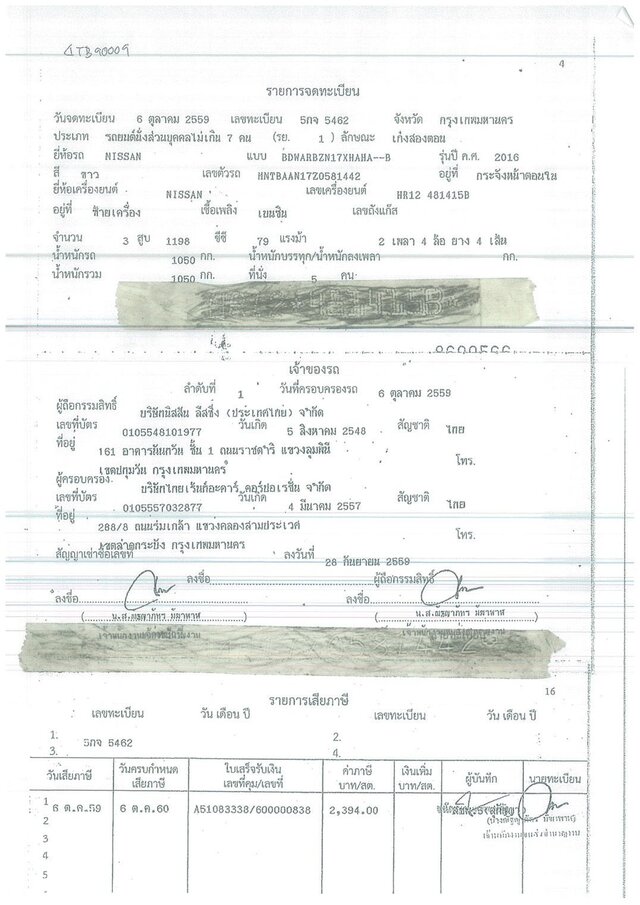 4TB90009
4
รายการจดทะเบียน
วันจดทะเบียน 6 ตุลาคม 2559 เลขทะเบียน 5กจ 5462 จังหวัด กรุงเทพมหานคร
ประเภท รถยนต์นั่งส่วนบุคคลไม่เกิน 7 คน (รย. 1 ) ลักษณะ เก๋งสองตอน
ยี่ห้อรถ NISSAN แบบ BDWARBZN17XHAHA--B รุ่นปี ค.ศ. 2016
สี ขาว เลขตัวรถ HNTBAAN17Z0581442 อยู่ที่ กระจังหน้าตอนใน
ยี่ห้อเครื่องยนต์ NISSAN เลขเครื่องยนต์ HR12 481415B
อยู่ที่ ซ้ายเครื่อง เชื้อเพลิง เบนซิน เลขถังแก๊ส
จำนวน 3 สูบ 1198 ซีซี 79 แรงม้า 2 เพลา 4 ล้อ ยาง 4 เส้น
น้ำหนักรถ 1050 กก. น้ำหนักบรรทุก/น้ำหนักลงเพลา กก.
น้ำหนักรวม 1050 กก. ที่นั่ง 5 คน
เจ้าของรถ
ลำดับที่ 1 วันที่ครอบครองรถ 6 ตุลาคม 2559
ผู้ถือกรรมสิทธิ์ บริษัทนิสสัน ลีสซิ่ง (ประเทศไทย) จำกัด
เลขที่บัตร 0105548101977 วันเกิด 5 สิงหาคม 2548 สัญชาติ ไทย
ที่อยู่ 161 อาคารนันทวัน ชั้น 1 ถนนราชดำริ แขวงลุมพินี
เขตปทุมวัน กรุงเทพมหานคร โทร.
ผู้ครอบครอง บริษัทไทยเร้นท์อะคาร์ คอร์ปอเรชั่น จำกัด
เลขที่บัตร 0105557032877 วันเกิด 4 มีนาคม 2557 สัญชาติ ไทย
ที่อยู่ 288/8 ถนนร่มเกล้า แขวงคลองสามประเวศ
เขตลาดกระบัง กรุงเทพมหานคร โทร.
สัญญาเช่าซื้อเลขที่ ลงวันที่ 28 กันยายน 2559
ลงชื่อ ผู้ถือกรรมสิทธิ์
ลงชื่อ ลงชื่อ
16
รายการเสียภาษี
เลขทะเบียน วัน เดือน ปี เลขทะเบียน วัน เดือน ปี
1. 5กจ 5462 2.
3. 4.
วันเสียภาษี วันครบกำหนดเสียภาษี ใบเสร็จรับเงิน เลขที่คุม/เลขที่ ค่าภาษี บาท/สต. เงินเพิ่ม บาท/สต. ผู้บันทึก นายทะเบียน
1 6 ต.ค.59 6 ต.ค.60 A51083338/600000838 2,394.00
2
3
4
5